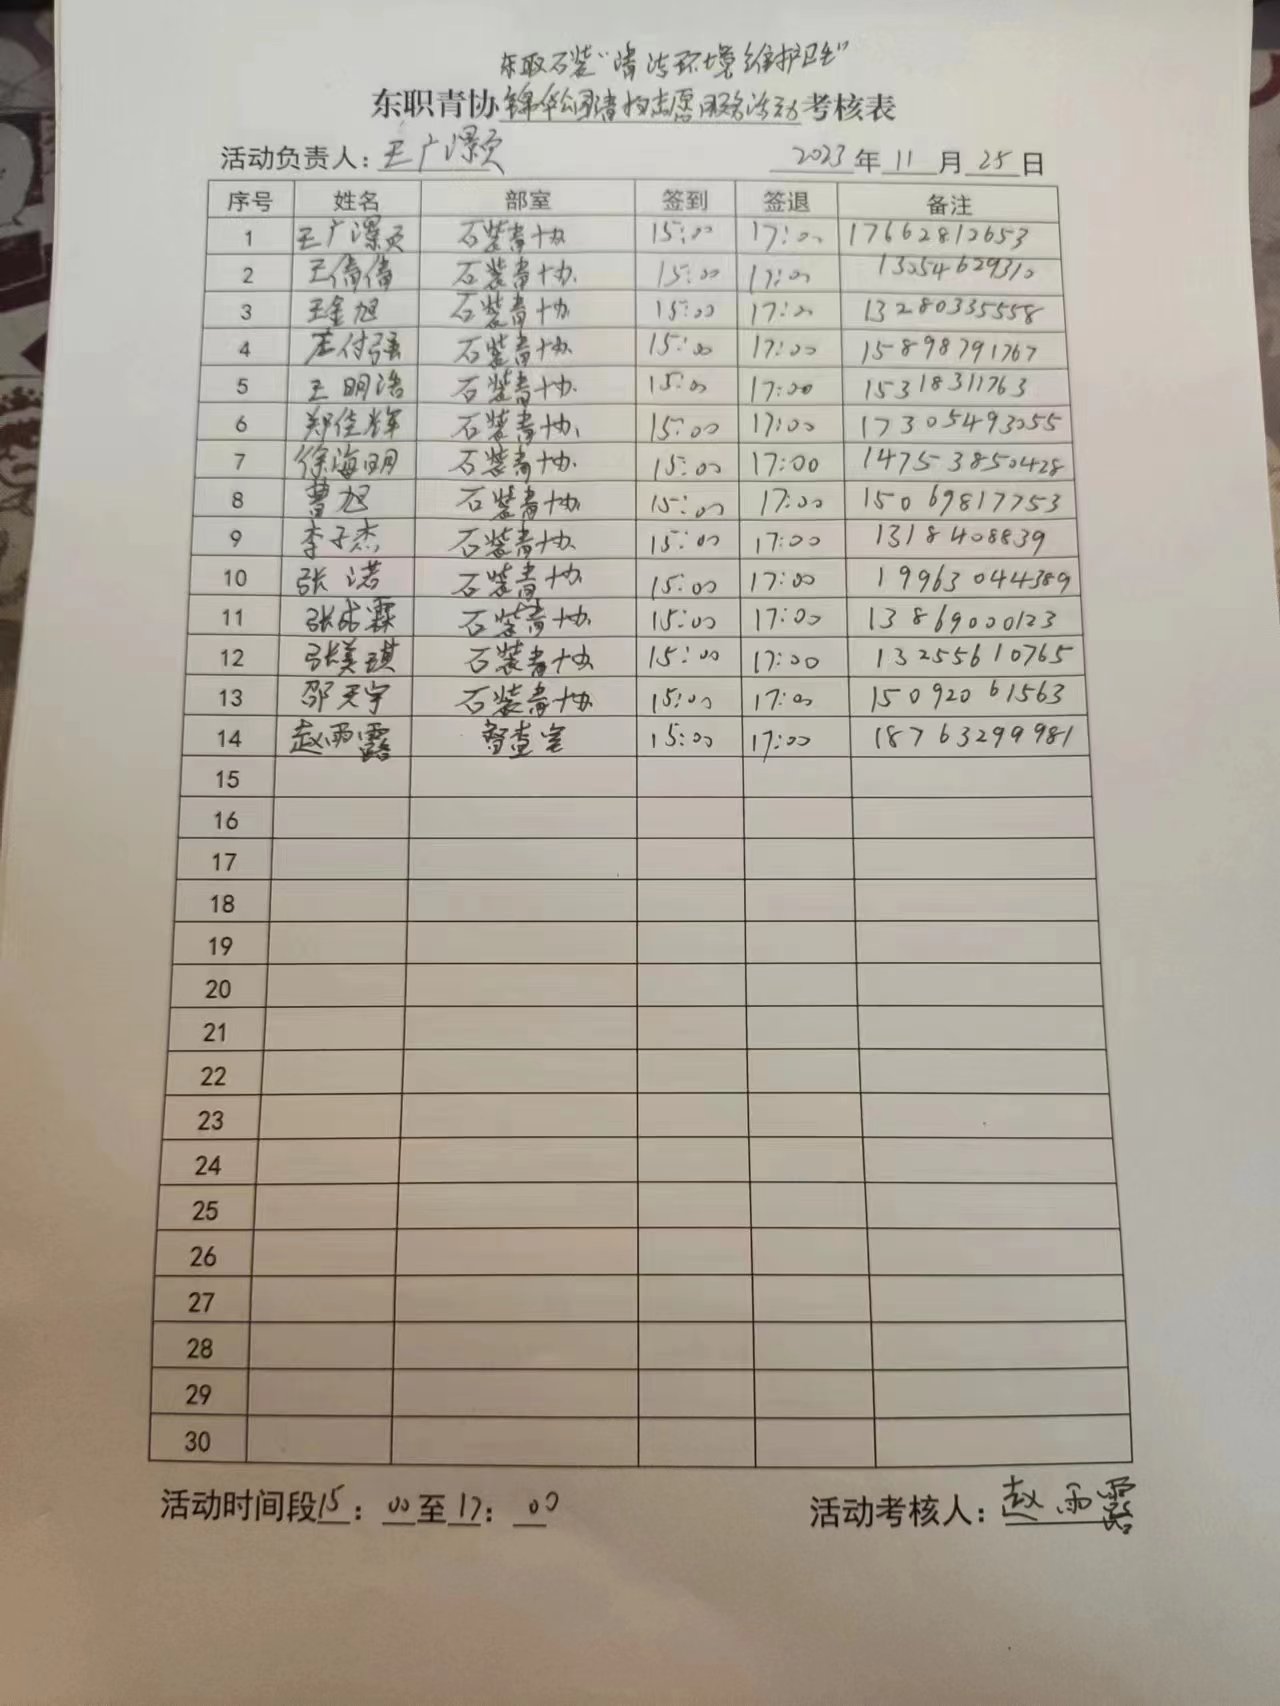 东职石装“清洁环境 维护卫生”
东职青协锦华公园清扫志愿服务活动考核表
活动负责人：王广灏
2023年11月25日
序号 姓名 部室 签到 签退 备注
1 王广灏 石装青协 15:00 17:00 17662812653
2 王倩倩 石装青协 15:00 17:00 13054629310
3 王金旭 石装青协 15:00 17:00 13280335558
4 付强 石装青协 15:00 17:00 15898791767
5 王明浩 石装青协 15:00 17:00 15318311763
6 郑佳辉 石装青协 15:00 17:00 17305493055
7 徐海明 石装青协 15:00 17:00 14753850428
8 曹旭 石装青协 15:00 17:00 15069817753
9 李子杰 石装青协 15:00 17:00 1318408839
10 张诺 石装青协 15:00 17:00 19963044389
11 张成霖 石装青协 15:00 17:00 13869000123
12 张美琪 石装青协 15:00 17:00 13255610765
13 邵天宇 石装青协 15:00 17:00 15092061563
14 赵雨露 督查室 15:00 17:00 18763299981
15
16
17
18
19
20
21
22
23
24
25
26
27
28
29
30
活动时间段15：00至17：00
活动考核人：赵雨露